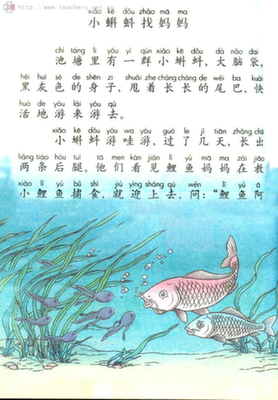 xiǎo kē dǒu zhǎo mā ma
小蝌蚪找妈妈
chí táng lǐ yǒu yì qún xiǎo kē dǒu dà nǎo dai
池塘里有一群小蝌蚪，大脑袋，
hēi huī sè de shēn zi shuǎi zhe cháng cháng de wěi ba kuài
黑灰色的身子，甩着长长的尾巴，快
huó de yóu lái yóu qù
活地游来游去。
xiǎo kē dǒu yóu wa yóu guò le jǐ tiān zhǎng chū
小蝌蚪游哇游，过了几天，长出
liǎng tiáo hòu tuǐ tā men kàn jiàn lǐ yú mā ma zài jiāo
两条后腿。他们看见鲤鱼妈妈在教
xiǎo lǐ yú bǔ shí jiù yíng shàng qù wèn lǐ yú ā
小鲤鱼捕食，就迎上去，问：“鲤鱼阿